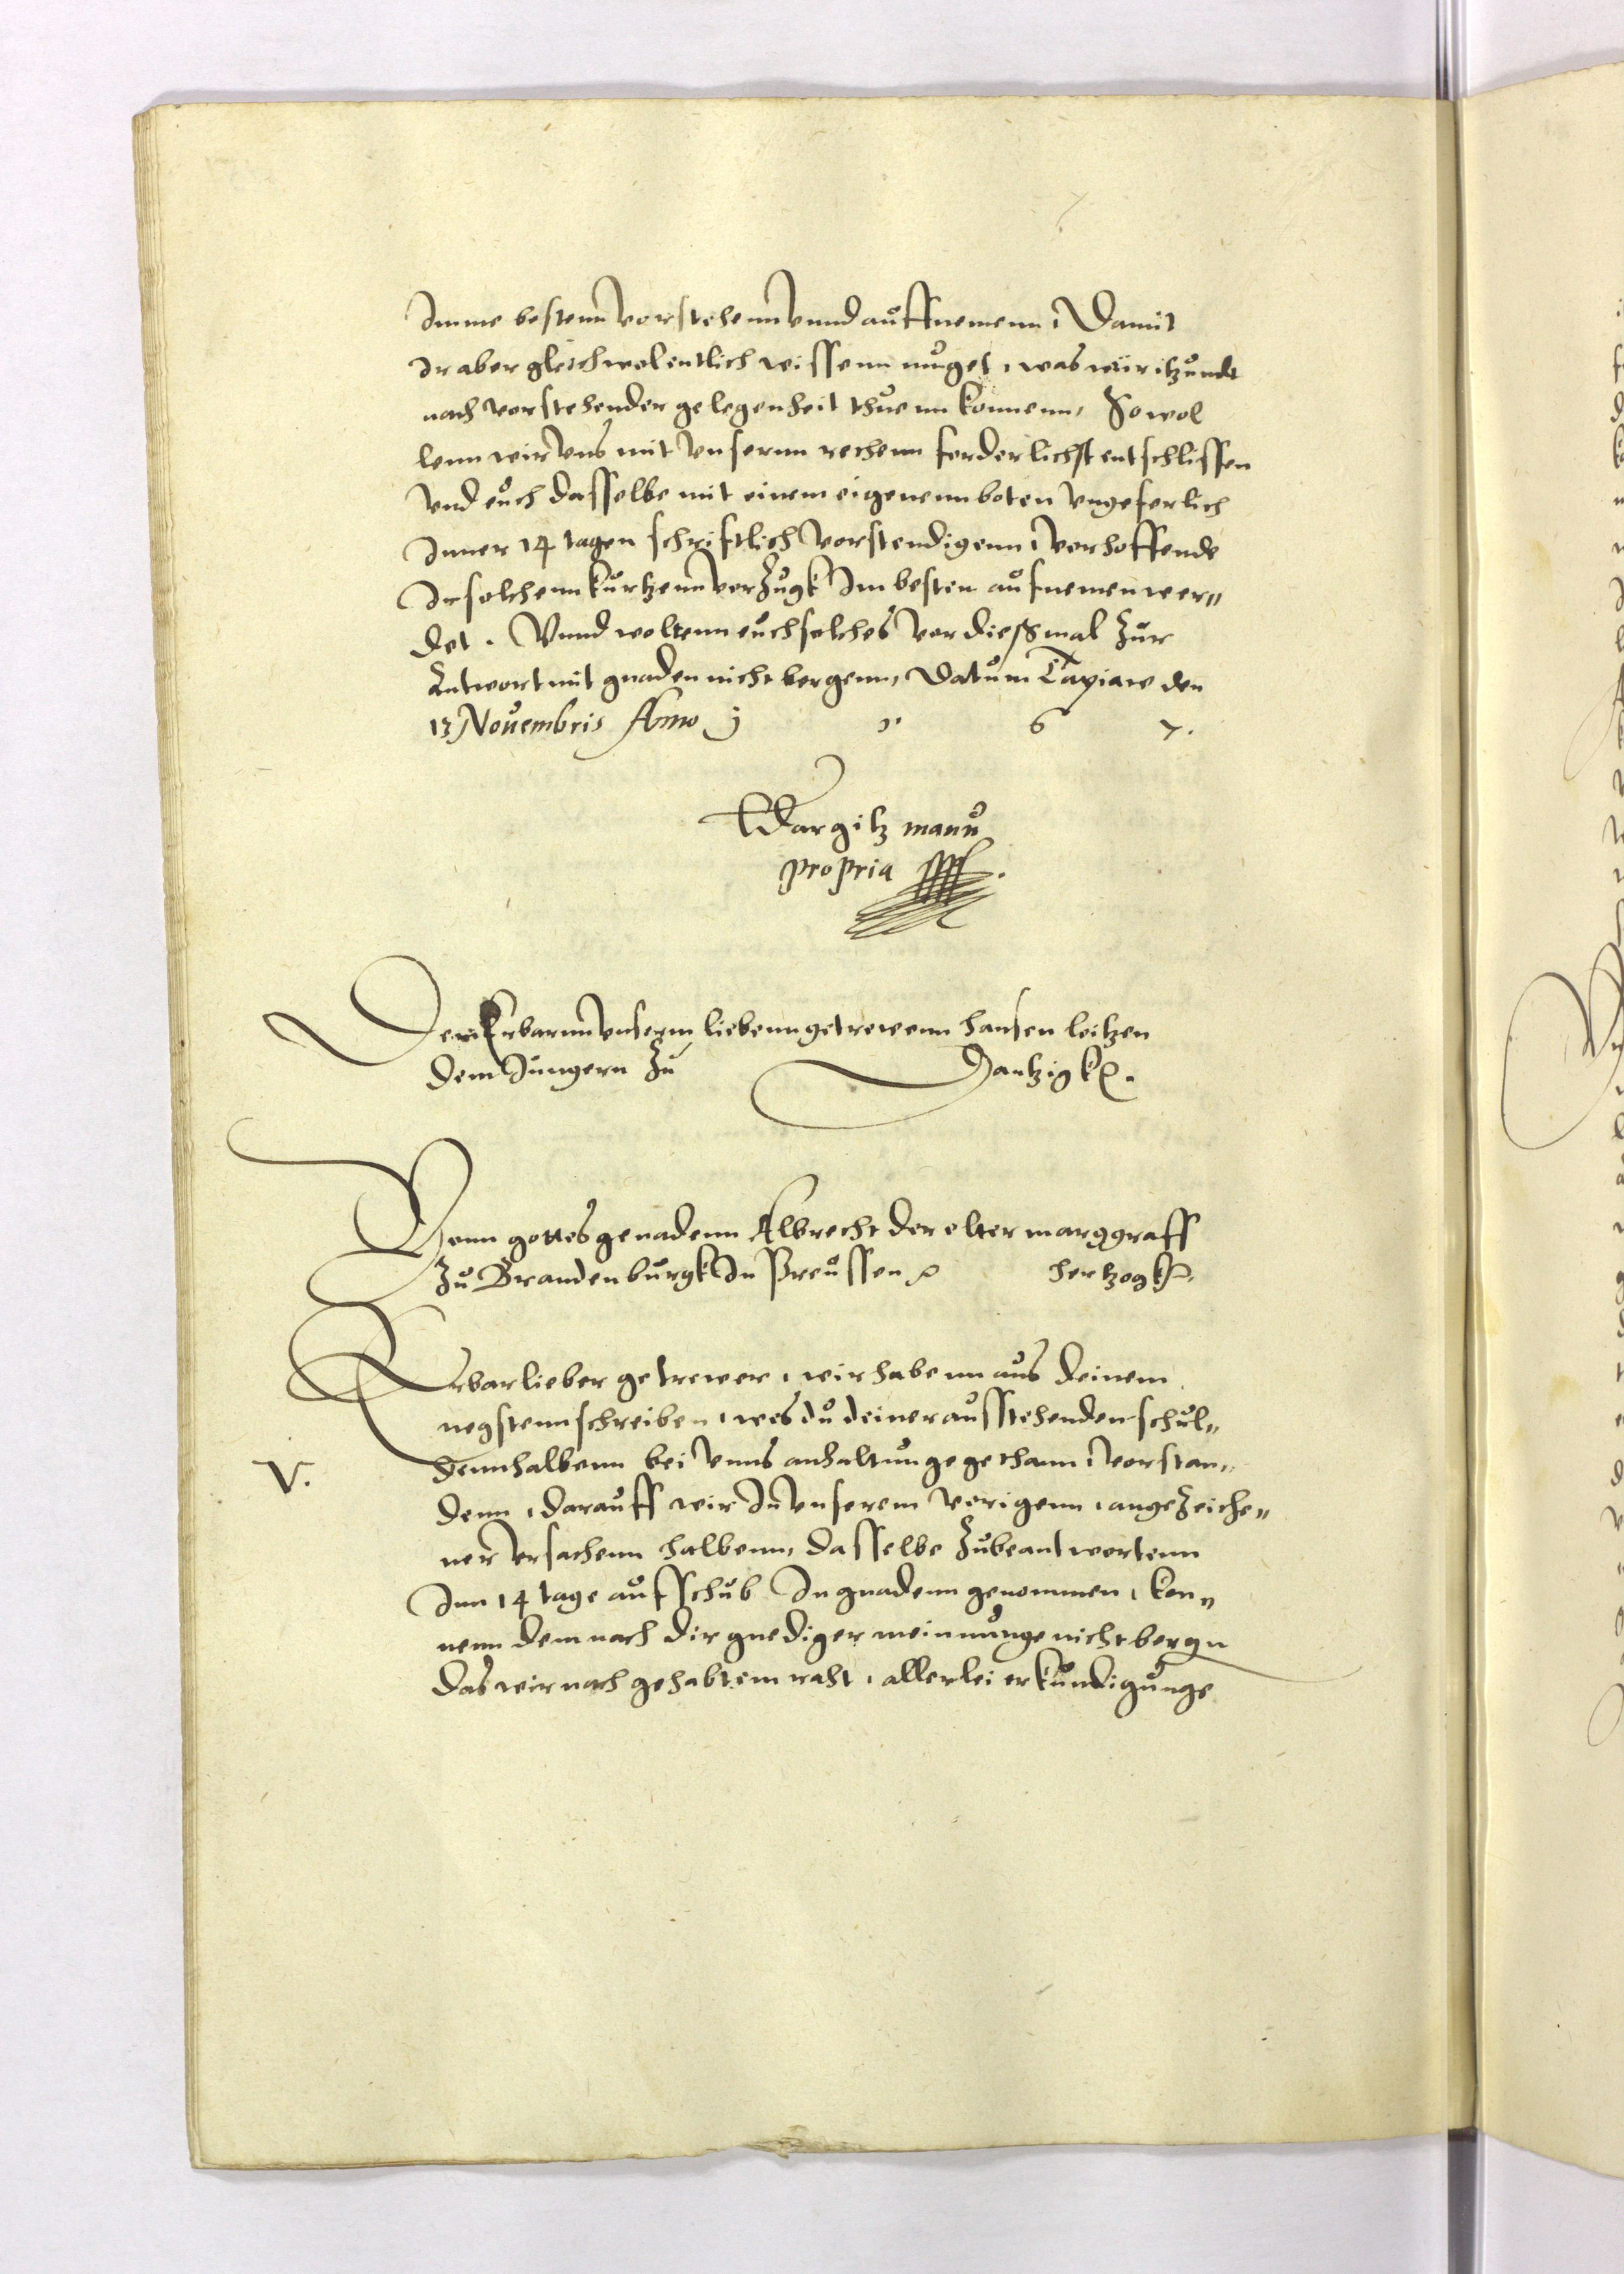 Imme bestenn vorstehenn vnnd auffnemenn, Damit
Ir aber gleichwol entlich wissenn muget, was wir itzundt
nach vorstehender gelegenheit thuenn konnenn, So wol
lenn wir vns mit vnsernn rethenn forderlichst entschlissen
vnd euch dasselbe mit einem eigenenn boten vngeferlich
Inner 14 tagen schriftlich vorstendigenn, verhoffende
Ir solchenn kurtzenn verzugk Im besten aufnemen wer„
det. Vnnd woltenn euch solches vor dießmal zur
Antwort mit gnaden nicht bergenn, Datum Tapiaw den
13 Nouembris Anno j 5 6 7.
Wargitz manu
propria
Dem Erbarnn vnserm liebenn getrewenn Hansen leitzen
dem Jungern zu Dantzigk
Vonn gottes genadenn Albrecht der elter marggraff
zu Brandenburgk In Preussen hertzogk
Erbar lieber getrewer, wir habenn aus deinem
negstenn schreiben, wes du deiner ausstehenden schul„
V.
dennhalbenn bei vnns anhaltunge gethann, vorstan„
denn, darauff wir In vnserem vorigenn, angezeiche„
ner vrsachenn halbenn, dasselbe zubeantwortenn
Inn 14 tage aufschub In gnadenn genommen, kon„
nenn demnach dir gnediger meinnunge nicht bergn
das wir nach gehabtem raht, allerlei erkundigunge